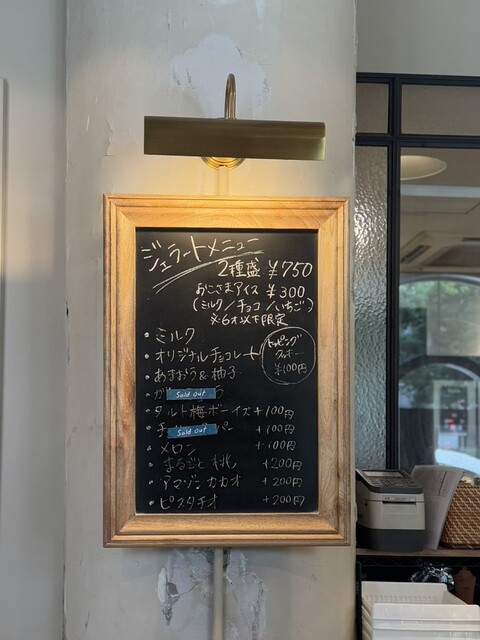 ジェラートメニュー
2種盛 ¥750
おこさまアイス ¥300
(ミルク/チョコ/いちご)
※6才以下限定
トッピング
クッキー
¥100円
・ミルク
・オリジナルチョコレート
・あまおう&柚子
Sold out
・タルト梅ボーイズ +100円
Sold out +100円
・メロン +100円
・まるごと桃 +200円
・アマゾンカカオ +200円
・ピスタチオ +200円